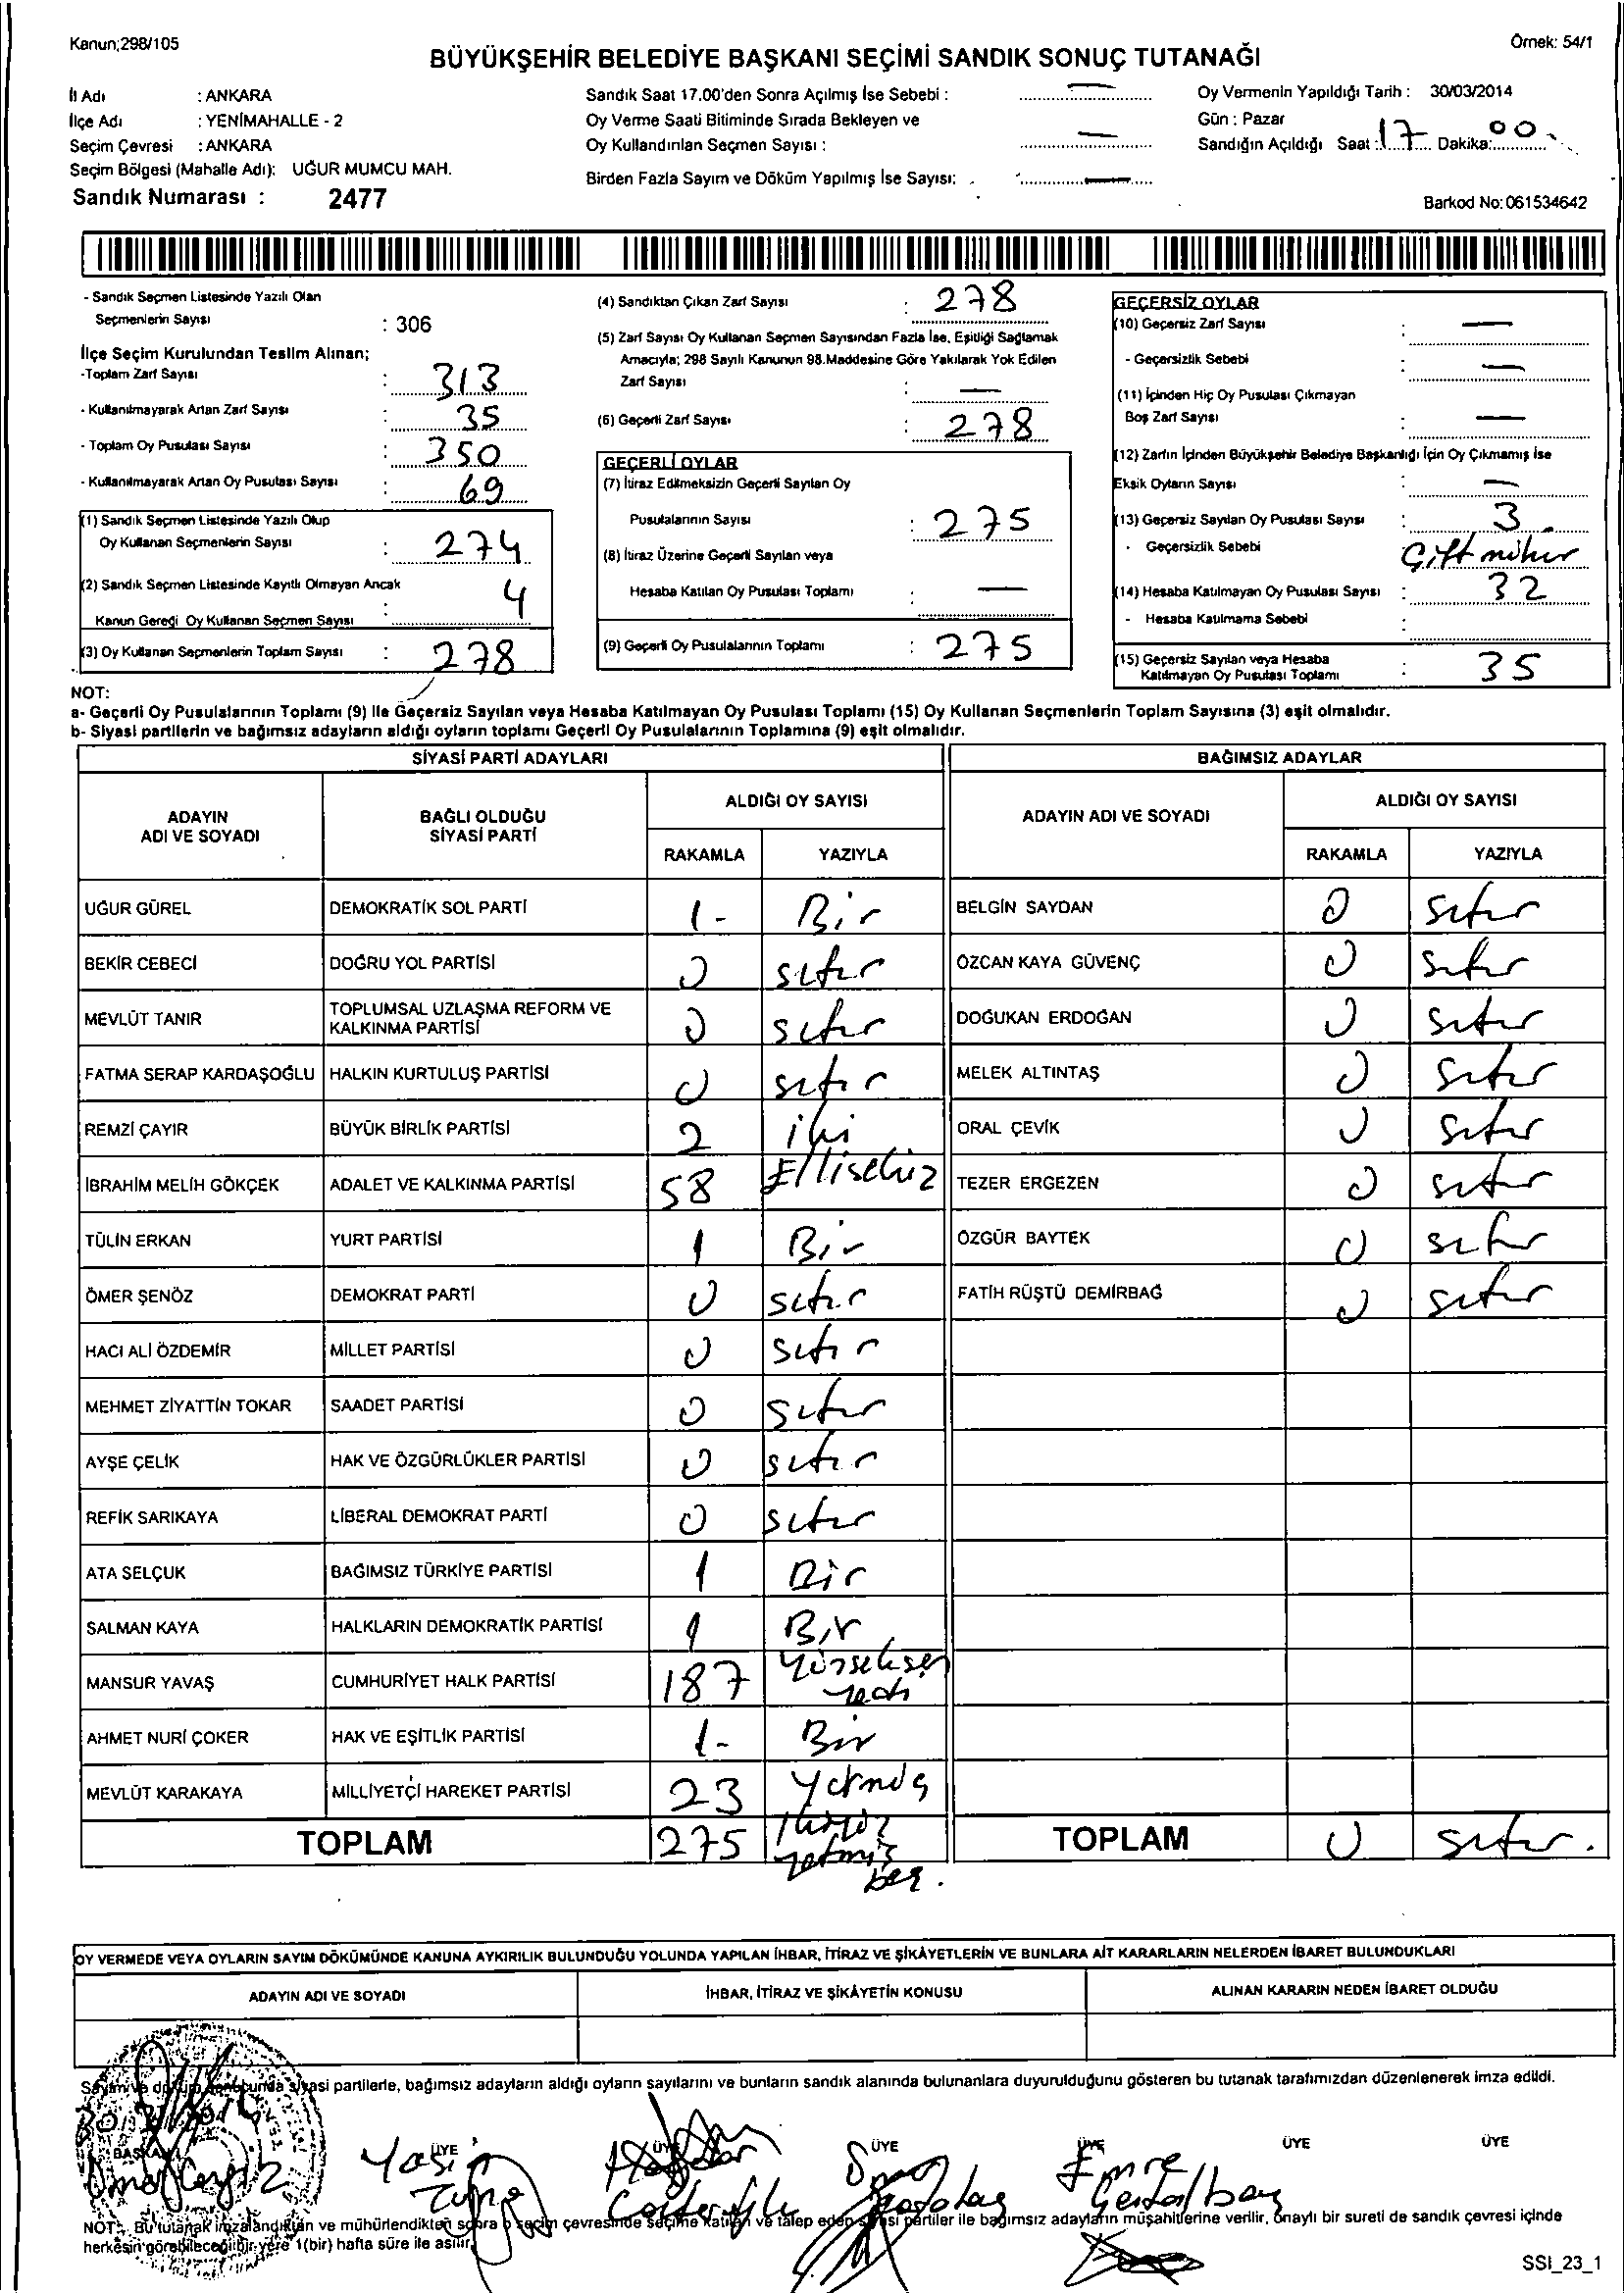 Kanun;298/105
Örnek: 54/1
BÜYÜKŞEHİR BELEDİYE BAŞKANI SEÇİMİ SANDIK SONUÇ TUTANAĞI
İl Adı : ANKARA
İlçe Adı : YENİMAHALLE - 2
Seçim Çevresi : ANKARA
Seçim Bölgesi (Mahalle Adı): UĞUR MUMCU MAH.
Sandık Numarası : 2477
Sandık Saat 17.00'den Sonra Açılmış İse Sebebi : —
Oy Verme Saati Bitiminde Sırada Bekleyen ve
Oy Kullandırılan Seçmen Sayısı : —
Birden Fazla Sayım ve Döküm Yapılmış İse Sayısı: —
Oy Vermenin Yapıldığı Tarih : 30/03/2014
Gün : Pazar
Sandığın Açıldığı Saat : 17 Dakika: 00
Barkod No: 061534642
- Sandık Seçmen Listesinde Yazılı Olan
Seçmenlerin Sayısı : 306
İlçe Seçim Kurulundan Teslim Alınan;
-Toplam Zarf Sayısı : 313
- Kullanılmayarak Artan Zarf Sayısı : 35
- Toplam Oy Pusulası Sayısı : 350
- Kullanılmayarak Artan Oy Pusulası Sayısı : 69
(1) Sandık Seçmen Listesinde Yazılı Olup
Oy Kullanan Seçmenlerin Sayısı : 274
(2) Sandık Seçmen Listesinde Kayıtlı Olmayan Ancak
Kanun Gereği Oy Kullanan Seçmen Sayısı : 4
(3) Oy Kullanan Seçmenlerin Toplam Sayısı : 278
(4) Sandıktan Çıkan Zarf Sayısı : 278
(5) Zarf Sayısı Oy Kullanan Seçmen Sayısından Fazla İse, Eşitliği Sağlamak
Amacıyla; 298 Sayılı Kanunun 98.Maddesine Göre Yakılarak Yok Edilen
Zarf Sayısı : —
(6) Geçerli Zarf Sayısı : 278
GEÇERLİ OYLAR
(7) İtiraz Edilmeksizin Geçerli Sayılan Oy
Pusulalarının Sayısı : 275
(8) İtiraz Üzerine Geçerli Sayılan veya
Hesaba Katılan Oy Pusulası Toplamı : —
(9) Geçerli Oy Pusulalarının Toplamı : 275
GEÇERSİZ OYLAR
(10) Geçersiz Zarf Sayısı : —
- Geçersizlik Sebebi : —
(11) İçinden Hiç Oy Pusulası Çıkmayan
Boş Zarf Sayısı : —
(12) Zarfın İçinden Büyükşehir Belediye Başkanlığı İçin Oy Çıkmamış İse
Eksik Oyların Sayısı : —
(13) Geçersiz Sayılan Oy Pusulası Sayısı : 3
- Geçersizlik Sebebi : Çift mühür
(14) Hesaba Katılmayan Oy Pusulası Sayısı : 32
- Hesaba Katılmama Sebebi :
(15) Geçersiz Sayılan veya Hesaba
Katılmayan Oy Pusulası Toplamı : 35
NOT:
a- Geçerli Oy Pusulalarının Toplamı (9) ile Geçersiz Sayılan veya Hesaba Katılmayan Oy Pusulası Toplamı (15) Oy Kullanan Seçmenlerin Toplam Sayısına (3) eşit olmalıdır.
b- Siyasi partilerin ve bağımsız adayların aldığı oyların toplamı Geçerli Oy Pusulalarının Toplamına (9) eşit olmalıdır.
SİYASİ PARTİ ADAYLARI BAĞIMSIZ ADAYLAR
ADAYIN ADI VE SOYADI BAĞLI OLDUĞU SİYASİ PARTİ ALDIĞI OY SAYISI ADAYIN ADI VE SOYADI ALDIĞI OY SAYISI
RAKAMLA YAZIYLA RAKAMLA YAZIYLA
UĞUR GÜREL DEMOKRATİK SOL PARTİ 1- Bir BELGİN SAYDAN 0 sıfır
BEKİR CEBECİ DOĞRU YOL PARTİSİ 0 sıfır ÖZCAN KAYA GÜVENÇ 0 sıfır
MEVLÜT TANIR TOPLUMSAL UZLAŞMA REFORM VE KALKINMA PARTİSİ 0 sıfır DOĞUKAN ERDOĞAN 0 sıfır
FATMA SERAP KARDAŞOĞLU HALKIN KURTULUŞ PARTİSİ 0 sıfır MELEK ALTINTAŞ 0 sıfır
REMZİ ÇAYIR BÜYÜK BİRLİK PARTİSİ 2 iki ORAL ÇEVİK 0 sıfır
İBRAHİM MELİH GÖKÇEK ADALET VE KALKINMA PARTİSİ 58 Ellisekiz TEZER ERGEZEN 0 sıfır
TÜLİN ERKAN YURT PARTİSİ 1 Bir ÖZGÜR BAYTEK 0 sıfır
ÖMER ŞENÖZ DEMOKRAT PARTİ 0 sıfır FATİH RÜŞTÜ DEMİRBAĞ 0 sıfır
HACI ALİ ÖZDEMİR MİLLET PARTİSİ 0 sıfır
MEHMET ZİYATTİN TOKAR SAADET PARTİSİ 0 sıfır
AYŞE ÇELİK HAK VE ÖZGÜRLÜKLER PARTİSİ 0 sıfır
REFİK SARIKAYA LİBERAL DEMOKRAT PARTİ 0 sıfır
ATA SELÇUK BAĞIMSIZ TÜRKİYE PARTİSİ 1 Bir
SALMAN KAYA HALKLARIN DEMOKRATİK PARTİSİ 1 Bir
MANSUR YAVAŞ CUMHURİYET HALK PARTİSİ 187 Yüzseksen yedi
AHMET NURİ ÇOKER HAK VE EŞİTLİK PARTİSİ 1- Bir
MEVLÜT KARAKAYA MİLLİYETÇİ HAREKET PARTİSİ 23
TOPLAM 275 ikiyüz yetmiş beş. TOPLAM 0 sıfır.
OY VERMEDE VEYA OYLARIN SAYIM DÖKÜMÜNDE KANUNA AYKIRILIK BULUNDUĞU YOLUNDA YAPILAN İHBAR, İTİRAZ VE ŞİKÂYETLERİN VE BUNLARA AİT KARARLARIN NELERDEN İBARET BULUNDUKLARI
ADAYIN ADI VE SOYADI İHBAR, İTİRAZ VE ŞİKÂYETİN KONUSU ALINAN KARARIN NEDEN İBARET OLDUĞU
Sayım ve döküm sonucunda siyasi partilerle, bağımsız adayların aldığı oyların sayılarını ve bunların sandık alanında bulunanlara duyurulduğunu gösteren bu tutanak tarafımızdan düzenlenerek imza edildi.
BAŞKAN ÜYE ÜYE ÜYE ÜYE ÜYE ÜYE
Yasin Emre
NOT: Bu tutanak imzalandıktan ve mühürlendikten sonra o seçim çevresinde seçime katılan ve talep eden siyasi partiler ile bağımsız adayların müşahitlerine verilir, onaylı bir sureti de sandık çevresi içinde
herkesin görebileceği bir yere 1(bir) hafta süre ile asılır.
SSI_23_1